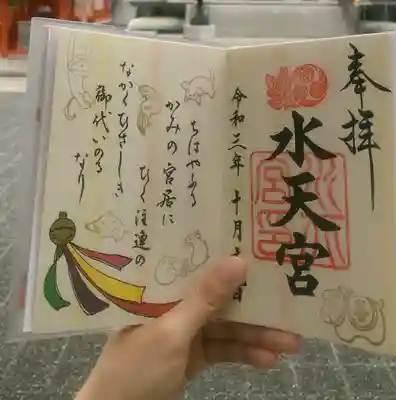 奉拝
水天宮
令和三年 十月
ちはやふる
かみの宮居に
ひく注連の
なかくひさしき
御代いのる
なり